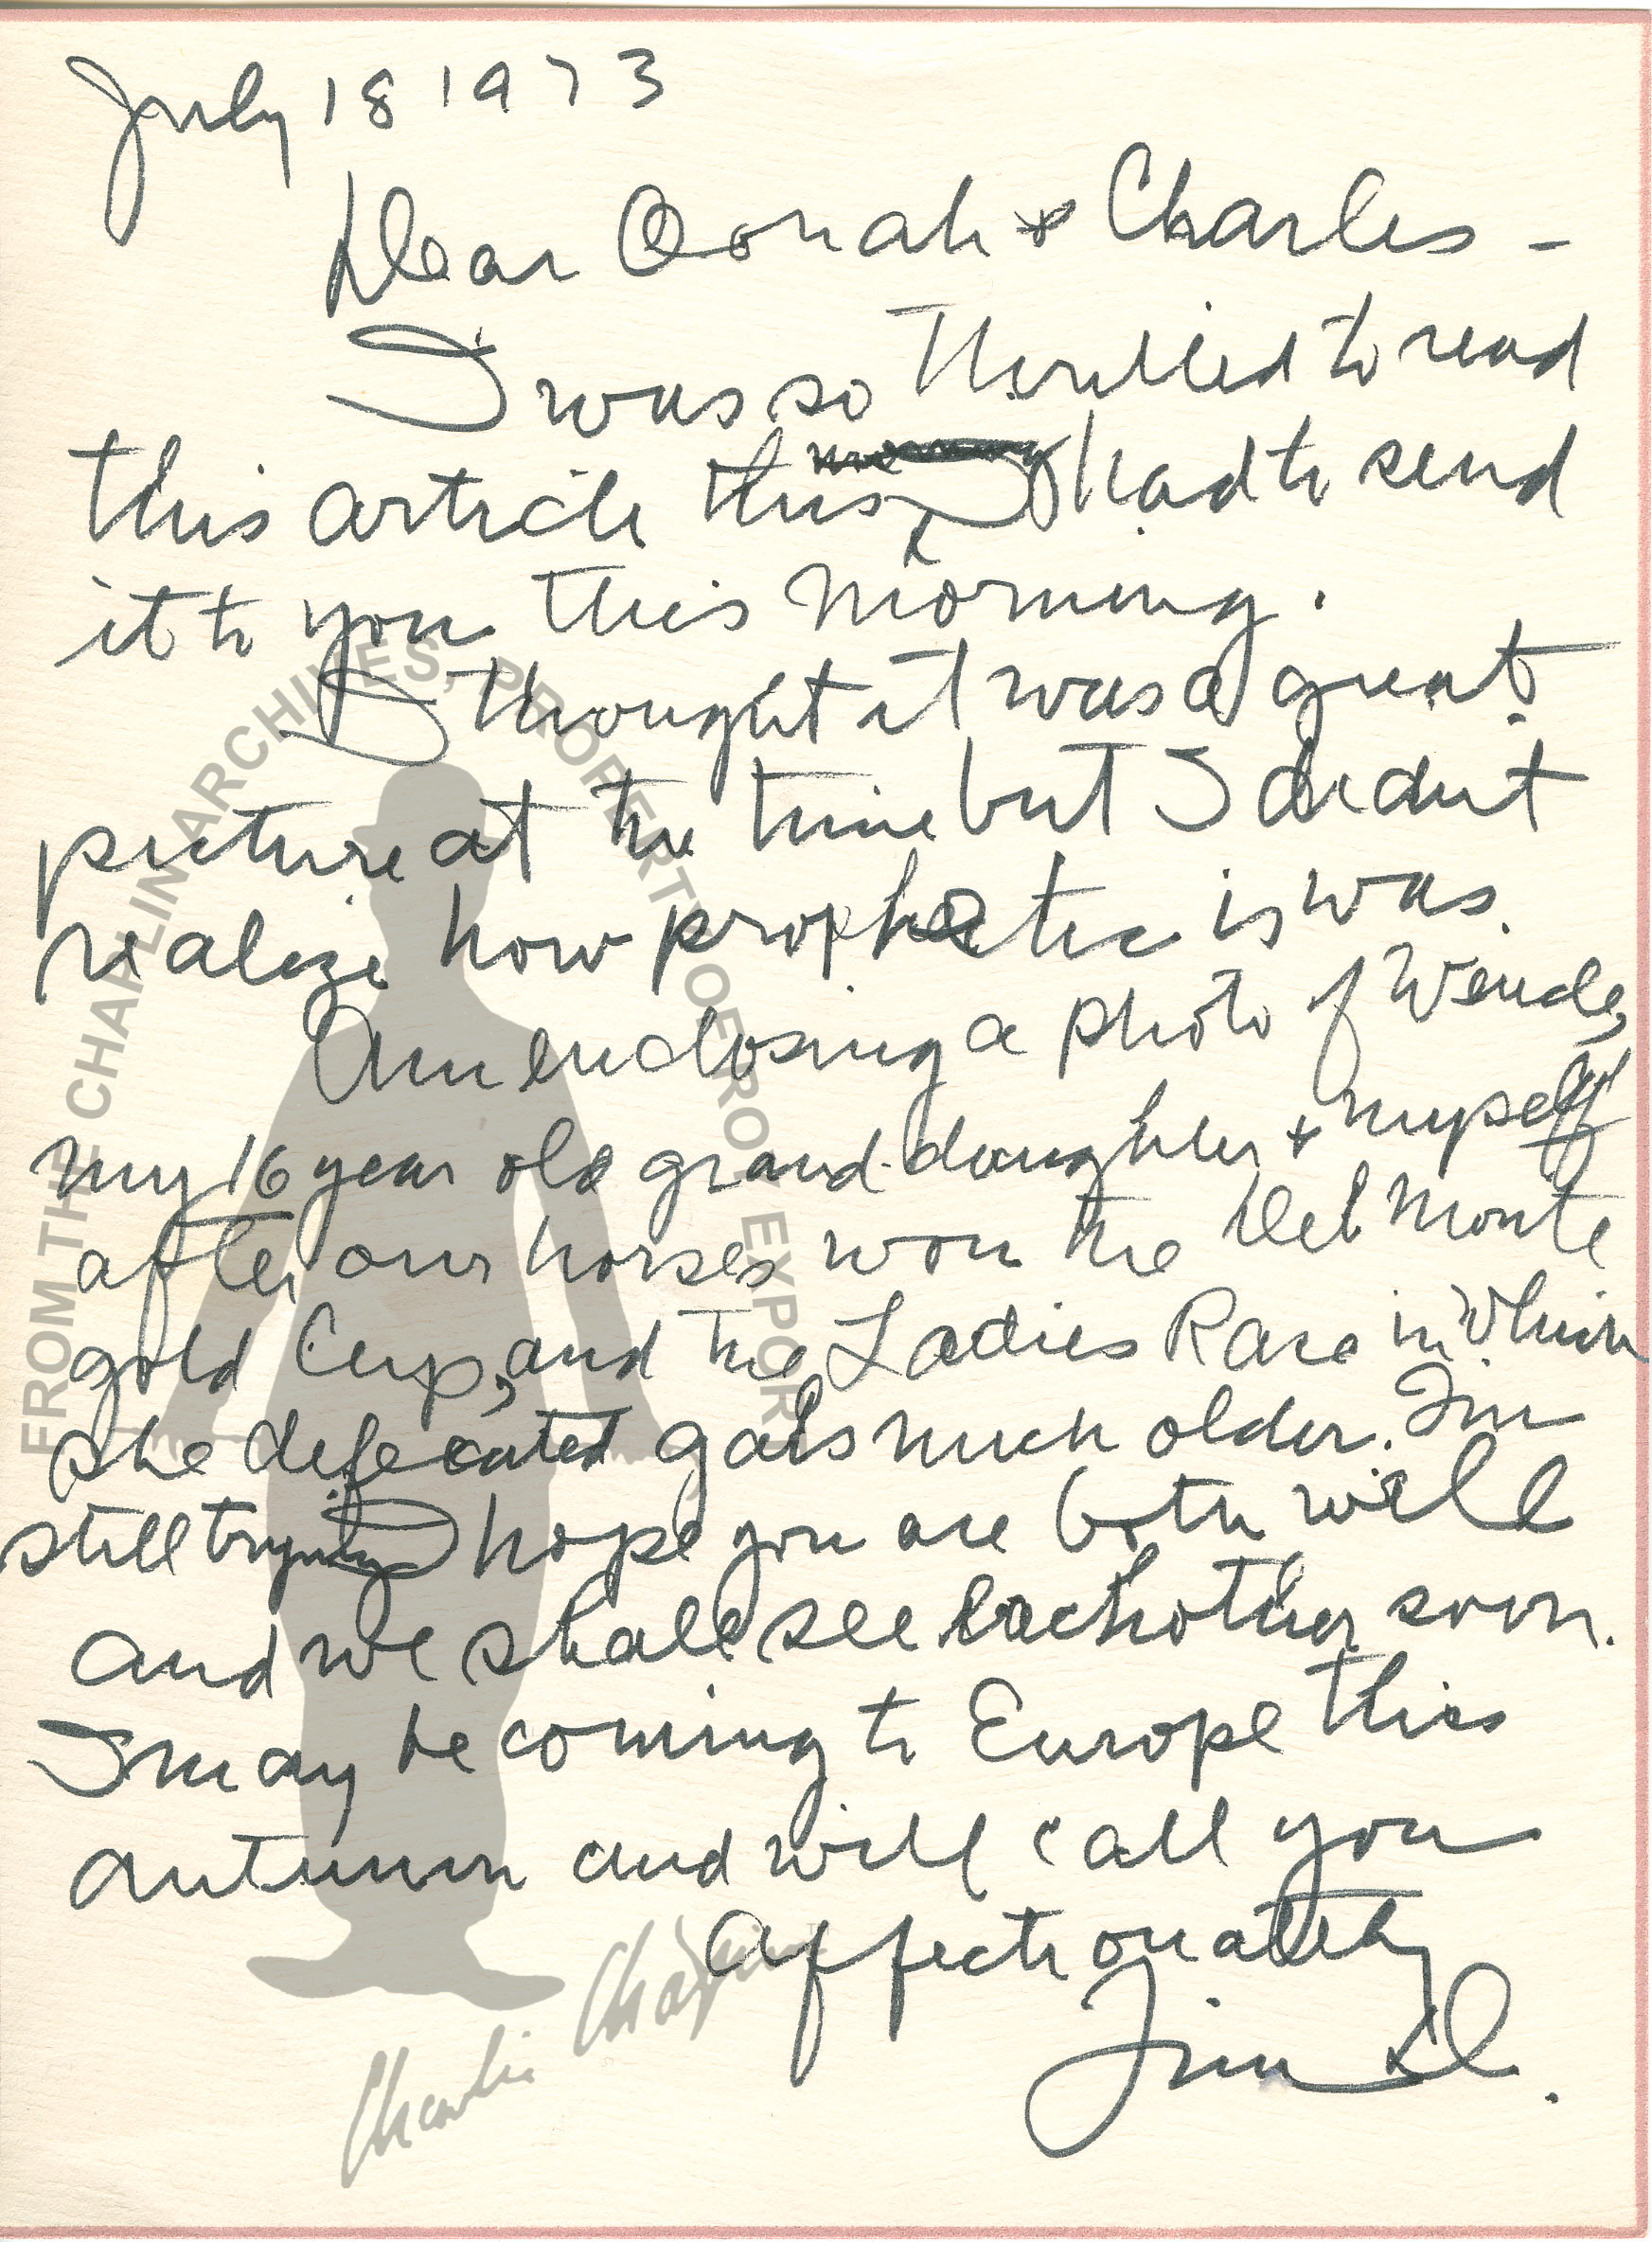 July 18 1973
Dear Oonah + Charles -
I was so thrilled to read
this article this I had to send
it to you this morning.
I thought it was a great
picture at the time but I didnt
realize how prophetic is was.
Am enclosing a photo of Wendy,
my 16 year old grand-daughter + myself
after our horses won the Del Monte
gold Cup, and the Ladies Race in which
she defeated gals much older. Im
still trying I hope you are both well
and we shall see each other soon.
I may be coming to Europe this
autumn and will call you
Affectionately
Tim
FROM THE CHAPLIN ARCHIVES, PROPERTY OF ROY EXPORT
Charlie Chaplin